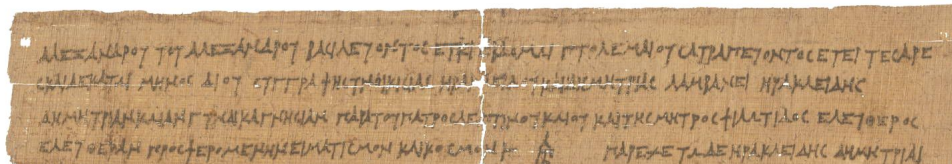 ΑΛΕΞΑΝΔΡΟΥ ΤΟΥ ΑΛΕΞΑΝΔΡΟΥ ΒΑΣΙΛΕΥΟΝΤΟΣ ΕΤΕΙ ΕΒΔΟΜΩΙ ΠΤΟΛΕΜΑΙΟΥ ΣΑΤΡΑΠΕΥΟΝΤΟΣ ΕΤΕΙ ΤΕΣΑΡΕ
ΣΚΑΙΔΕΚΑΤΩΙ ΜΗΝΟΣ ΔΙΟΥ ΣΥΓΓΡΑΦΗ ΣΥΝΟΙΚΙΣΙΑΣ ΗΡΑΚΛΕΙΔΟΥ ΚΑΙ ΔΗΜΗΤΡΙΑΣ ΛΑΜΒΑΝΕΙ ΗΡΑΚΛΕΙΔΗΣ
ΔΗΜΗΤΡΙΑΝ ΚΩΙΑΝ ΓΥΝΑΙΚΑ ΓΝΗΣΙΑΝ ΠΑΡΑ ΤΟΥ ΠΑΤΡΟΣ ΛΕΠΤΙΝΟΥ ΚΩΙΟΥ ΚΑΙ ΤΗΣ ΜΗΤΡΟΣ ΦΙΛΩΤΙΔΟΣ ΕΛΕΥΘΕΡΟΣ
ΕΛΕΥΘΕΡΑΝ ΠΡΟΣΦΕΡΟΜΕΝΗΝ ΕΙΜΑΤΙΣΜΟΝ ΚΑΙ ΚΟΣΜΟΝ ΠΑΡΕΧΕΤΩ ΔΕ ΗΡΑΚΛΕΙΔΗΣ ΔΗΜΗΤΡΙΑΙ